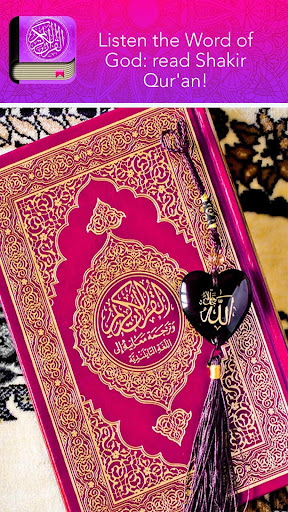 Listen the Word of
God: read Shakir
Qur'an!
القرآن الكريم
وترجمة معانيه إلى
الله